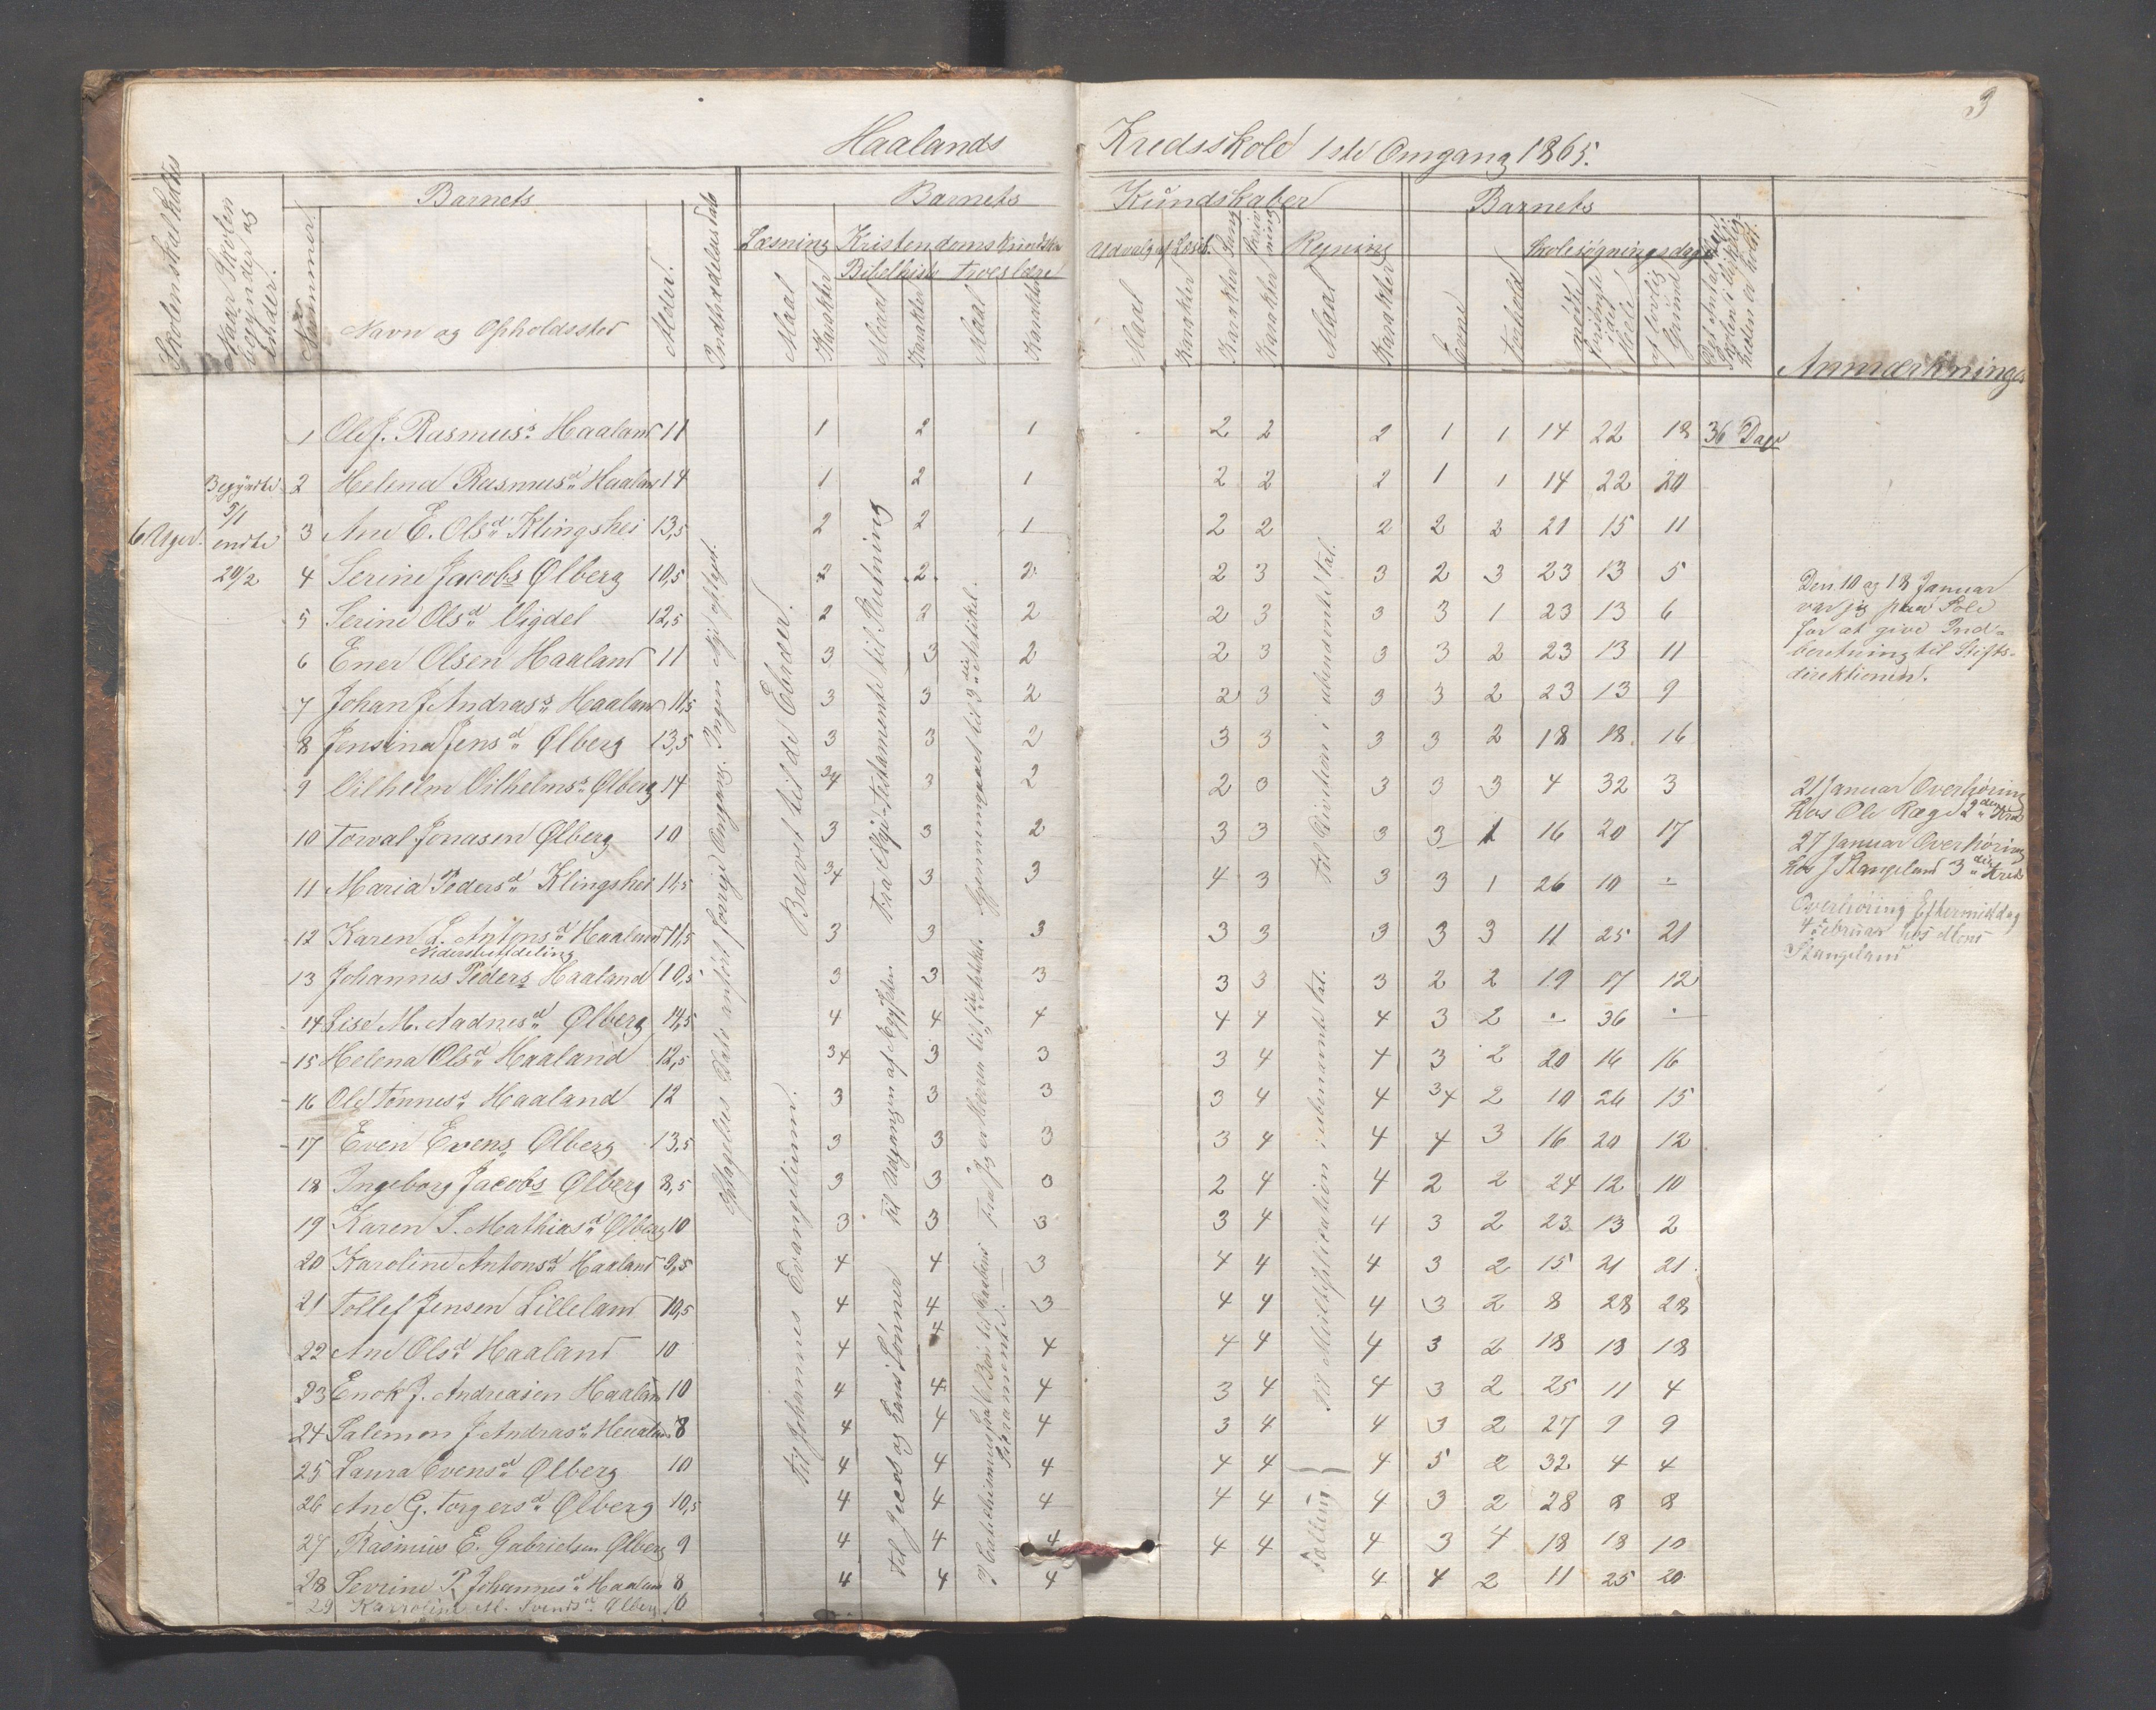 3
Haalands Kredsskole 1ste Omgang 1865.
Skolens lokale
Naar Skolen begynder og ender.
Barnets
Nummer.
Navn og Opholdssted
Alder.
Indtrædelsesdato
Barnets Kundskaber
Læsning
Kristendoms Kundskab
Bibelhist. Troeslære
Udvalg af Læseb.
Sang
Skrivning
Regning
Maal Karakter Maal Karakter Maal Karakter
Maal Karakter Karakter Karakter Maal Karakter
Barnets
Evne
Forhold
Skolesøgningsdage
mødte
forsømte i det Hele
af lovlig Grund
Det Antal Dage Skolen i Virkeligheden er holdt.
Anmærkninger
6 Uger.
Begyndte
5/1
endte
20/2
1 Ole J. Rasmuss. Haaland 11 1 2 1 2 2 2 1 1 14 22 18 36 Dage
2 Helena Rasmusd. Haaland 14 1 2 1 2 2 2 1 1 14 22 20
3 Ane E. Olsd. Klingshei 13,5 2 2 1 2 2 2 2 2 21 15 11
4 Serine Jacobs Ølberg 10,5 2 2 2 2 3 3 2 3 23 13 5
5 Serine Olsd. Vigdel 12,5 2 2 2 2 3 3 3 1 23 13 6
6 Ener Olsen Haaland 11 3 3 2 2 3 3 3 2 23 13 11
7 Johan J Andrass. Haaland 11,5 3 3 2 2 3 3 3 2 23 13 9
8 Jensina Jensd. Ølberg 13,5 3 3 2 3 3 3 3 2 18 18 16
9 Vilhelm Vilhelms. Ølberg 14 34 3 2 2 3 3 3 3 4 32 3
10 Torval Jonasen Ølberg 10 3 3 2 3 3 3 3 1 16 20 17
11 Maria Pedersd. Klingshei 11,5 34 3 3 4 3 3 3 1 26 10 -
12 Karen L. Antonsd. Haaland 11,5 3 3 3 3 3 3 3 3 11 25 21
Nederste Afdeling
13 Johannes Peders Haaland 10,5 3 3 3 3 3 3 2 2 19 17 12
14 Lise M. Aadnesd. Ølberg 14,5 4 4 4 4 4 4 3 2 - 36 -
15 Helena Olsd. Haaland 12,5 34 3 3 3 4 4 3 2 20 16 16
16 Ole Tønness. Haaland 12 3 3 3 3 4 4 34 2 10 26 15
17 Even Evens Ølberg 13,5 3 3 3 3 4 4 4 3 16 20 12
18 Ingeborg Jacobs Ølberg 8,5 3 3 3 2 4 4 2 2 24 12 10
19 Karen S. Mathiasd. Ølberg 10 3 3 3 3 4 4 3 2 23 13 2
20 Karoline Antonsd. Haaland 9,5 4 4 3 4 4 4 3 2 15 21 21
21 Tollef Jensen Lilleland 10,5 4 4 3 4 4 4 3 2 8 28 28
22 Ane Olsd. Haaland 10 4 4 4 4 4 4 3 2 18 18 18
23 Enok J. Andreasen Haaland 10 4 4 4 3 4 4 3 2 25 11 4
24 Salemon J Andrass. Haaland 8 4 4 4 3 4 4 3 2 27 9 9
25 Laura Evensd. Ølberg 10 4 4 4 4 4 4 5 2 32 4 4
26 Ane G. Torgersd. Ølberg 10,5 4 4 4 4 4 4 3 2 28 8 8
27 Rasmus E. Gabrielsen Ølberg 9 4 4 4 4 4 4 3 4 18 18 10
28 Sevrine P. Johannesd. Haaland 8 4 4 4 4 4 2 11 25 20
29 Karroline M. Svendsd. Ølberg 10
Optagelses Dato anført forrige Omgang. Ingen Nye optaget.
Bærvet til de Ebræer.
til Johannes Evangelium.
Fra Nye-Testamente til Slutning
til Udgangen af Ægypten
til Jacob og hans Sønner
Gjennemgaaet til 3die Artikel.
Til Division i ubenævnte Tal.
til Multiplikation i ubenævnte Tal.
Tælling
Den 10 og 18 Januar
var jeg paa Sole
for at give Ind-
beretning til Stifts-
direktionen.
21 Januar Overhøring
hos Ole Ræge 2den Kreds
27 Januar Overhøring
hos J Stangeland 3die Kreds
Overhøring Eftermiddag
4 Februar hos Mons
Stangeland